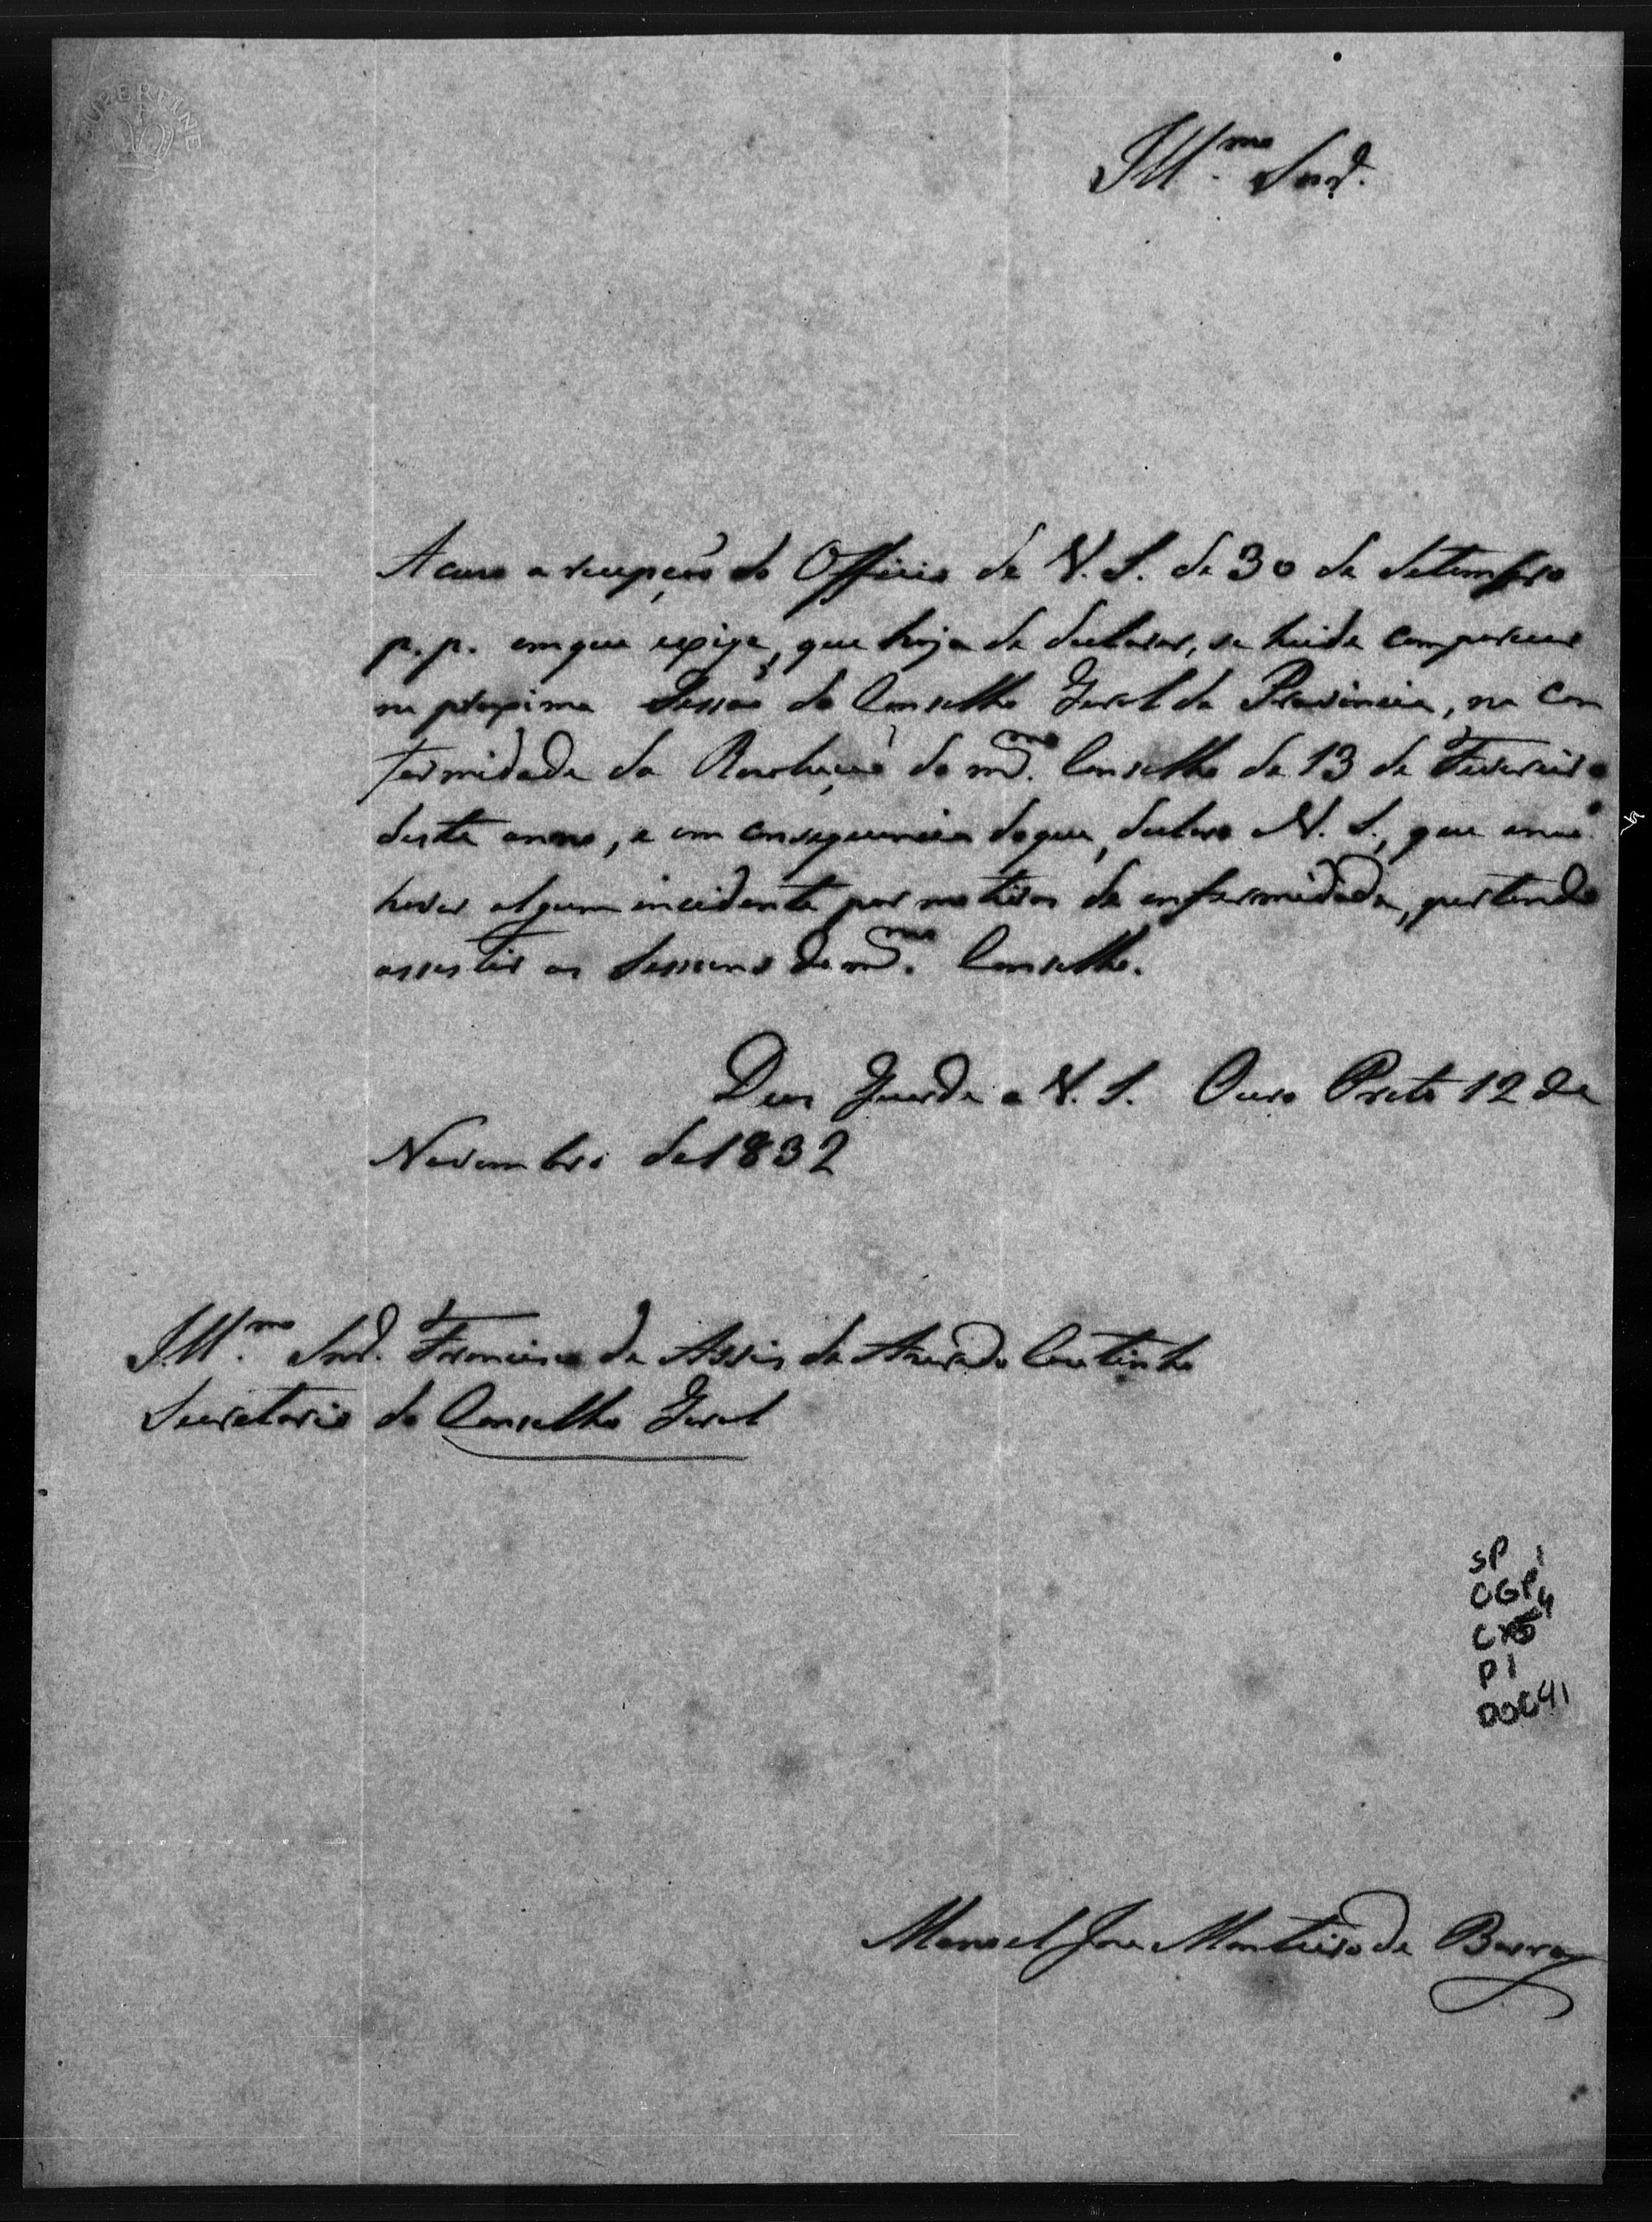 SUPERFINE
Ill.mo Snr.
Acuso a recepção do Officio de V. S. de 30 de Setembro
p.p. emque exige, que haja de declarar, se heide comparecer
na proxima Sessão do Conselho Geral da Provincia, na Con
formidade da Resolução do m.mo Conselho de 13 de Fevereiro
deste anno, e em consequencia doque, declaro a V. S., que anaõ
haver algum incidente por motivos de enfermidade, pertendo
assistir as Sessoens do m.mo Conselho.
Deos Guarde a V. S. Ouro Preto 12 de
Novembro de 1832
Ill.mo Snr. Francisco de Assis de Azeredo Coutinho
Secretario do Conselho Geral
SP 1
CGP1
CX 4
P1
DOC41
Manoel Jose Monteiro de Barros